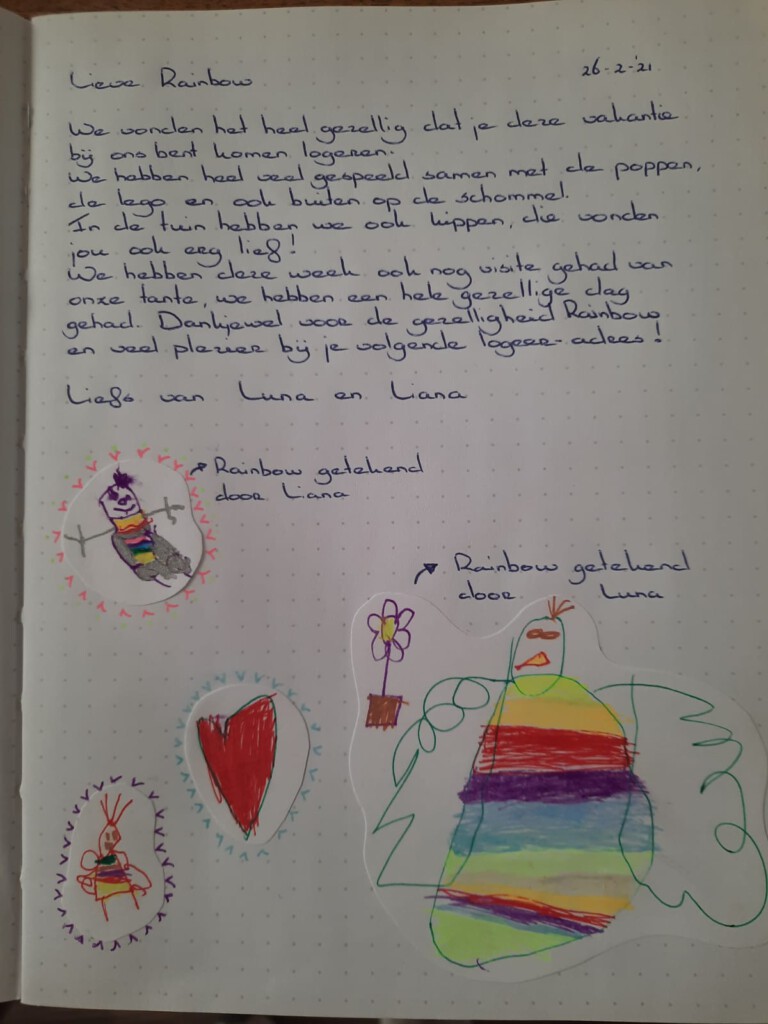 Lieve Rainbow 26-2-'21
We vonden het heel gezellig dat je deze vakantie
bij ons bent komen logeren.
We hebben heel veel gespeeld samen met de poppen,
de lego en ook buiten op de schommel.
In de tuin hebben we ook kippen, die vonden
jou ook erg lief!
We hebben deze week ook nog visite gehad van
onze tante, we hebben een hele gezellige dag
gehad. Dankjewel voor de gezelligheid Rainbow
en veel plezier bij je volgende logeer-adres!
Liefs van Luna en Liana
Rainbow getekend
door Liana
Rainbow getekend
door Luna